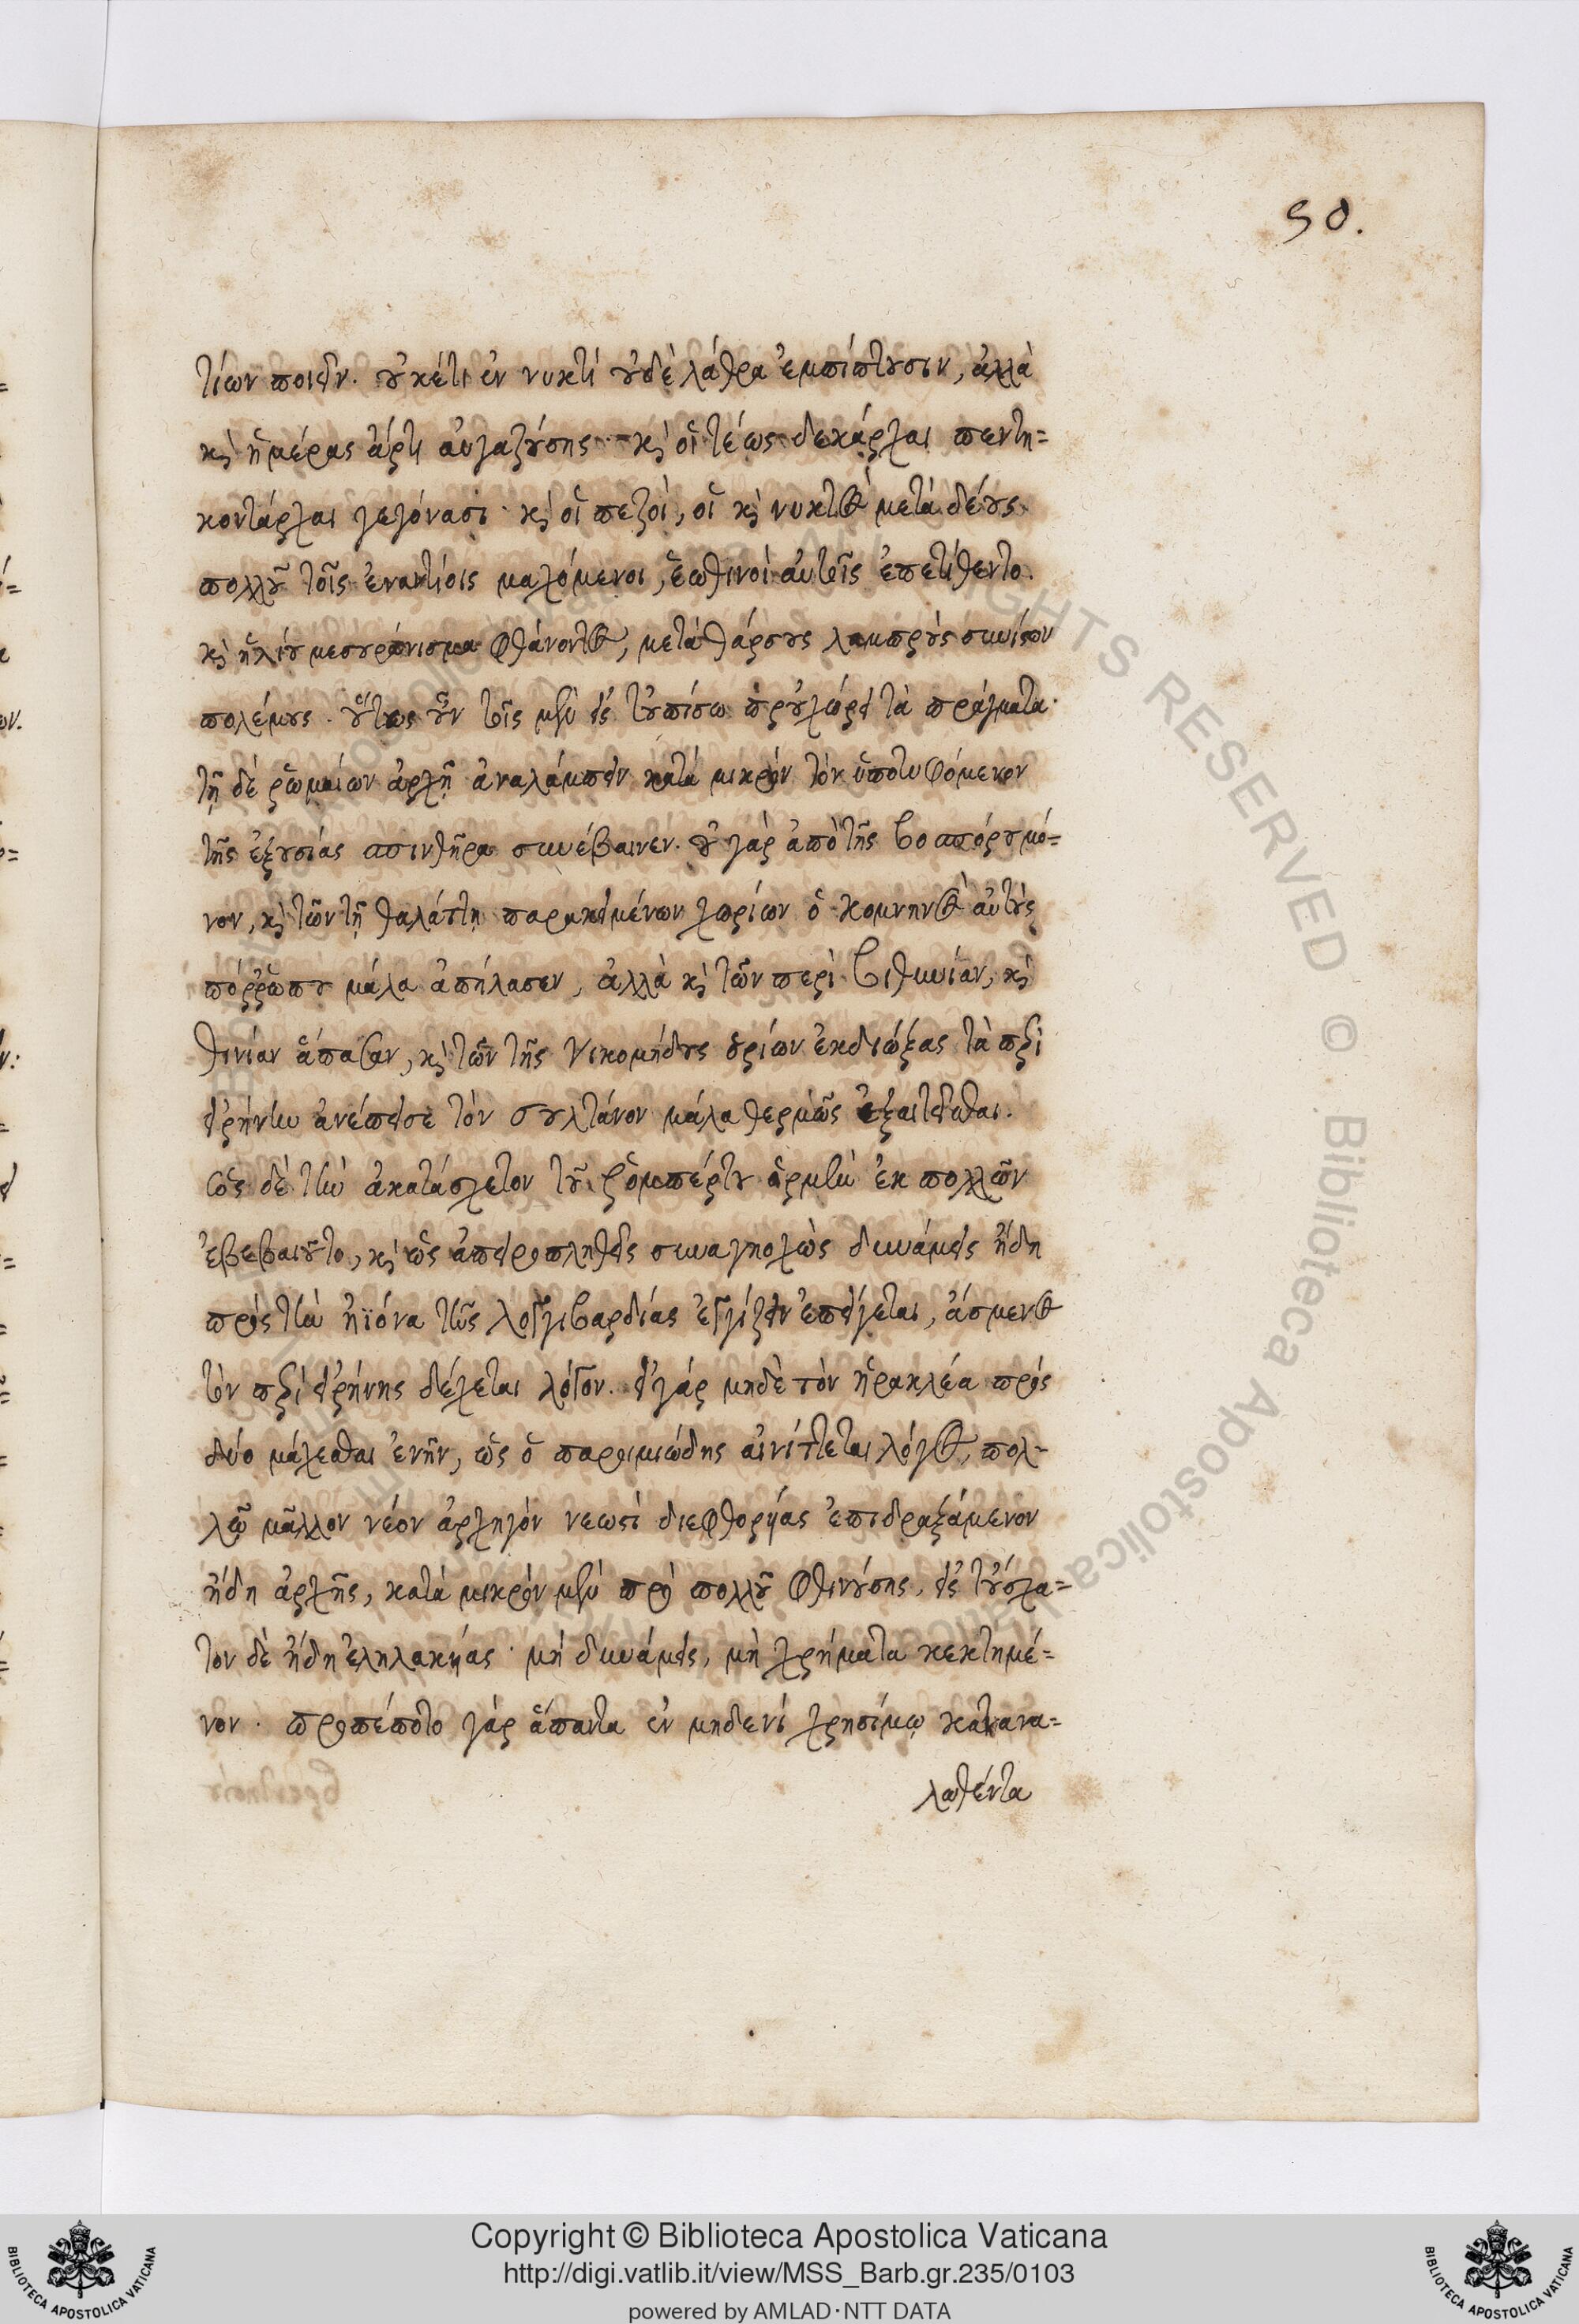 50.
τίων ποιεῖν. οὐκέτι ἐν νυκτὶ οὐδὲ λάθρα ἐμπίπτουσιν, ἀλλὰ
κὶ ἡμέρας ἄρτι αὐγαζούσης· κὶ οἱ τέως δεκάρχαι πεντη=
κοντάρχαι γεγόνασι· κὶ οἱ πεζοὶ, οἱ κὶ νυκτὸς μετὰ δέους
πολλοῦ τοῖς ἐναντίοις μαχόμενοι, ἑωθινοὶ αὐτοῖς ἐπετίθεντο.
κὶ ἡλίου μεσουράνισμα φθάνοντος, μετὰ θάρσους λαμπροὺς συνίστων
πολέμους. οὕτως οὖν τοῖς μὲν εἰς τοὐπίσω προὐχώρει τὰ πράγματα·
τῇ δὲ ῥωμαίων ἀρχῇ ἀναλάμπειν κατὰ μικρὸν τὸν ὑποτυφόμενον
τῆς ἐξουσίας σπινθῆρα συνέβαινεν. οὐ γὰρ ἀπὸ τῆς βοσπόρου μό=
νον, κὶ τῶν τῇ θαλάττῃ παρακειμένων χωρίων ὁ κομνηνὸς αὐτοὺς
πόῤῥωπου μάλα ἀπήλασεν, ἀλλὰ κὶ τῶν περὶ βιθυνίαν, κὶ
θυνίαν ἅπασαν, κὶ τῶν τῆς νικομήδους ὁρίων ἐκδιώξας τὰ περὶ
εἰρήνην ἀνέπεισε τὸν σουλτάνον μάλα θερμῶς ἐξαιτεῖσθαι.
ὃς δὲ τὴν ἀκατάσχετον τοῦ ῥομπέρτου ὁρμὴν ἐκ πολλῶν
ἐβεβαιοῦτο, κὶ ὡς ἀπειροπληθεῖς συναγηοχὼς δυνάμεις ἤδη
πρὸς τὴν ἠϊόνα τῆς λογγιβαρδίας ἐγγίζειν ἐπείγεται, ἄσμενος
τὸν περὶ εἰρήνης δέχεται λόγον. εἰ γὰρ μηδὲ τὸν ἡρακλέα πρὸς
δύο μάχεσθαι ἐνῆν, ὡς ὁ παροιμιώδης αἰνίττεται λόγος, πολ-
λῷ μᾶλλον νέον ἀρχηγὸν νεωστὶ διεφθορυίας ἐπιδραξάμενον
ἤδη ἀρχῆς, κατὰ μικρὸν μὲν πρὸ πολλοῦ φθινούσης, εἰς τοὔσχα=
τον δὲ ἤδη ἐληλακυίας· μὴ δυνάμεις, μὴ χρήματα κεκτημέ=
νον. προπέποτο γὰρ ἅπαντα ἐν μηδενὶ χρησίμῳ κατανα=
λωθέντα
Copyright © Biblioteca Apostolica Vaticana
http://digi.vatlib.it/view/MSS_Barb.gr.235/0103
powered by AMLAD·NTT DATA